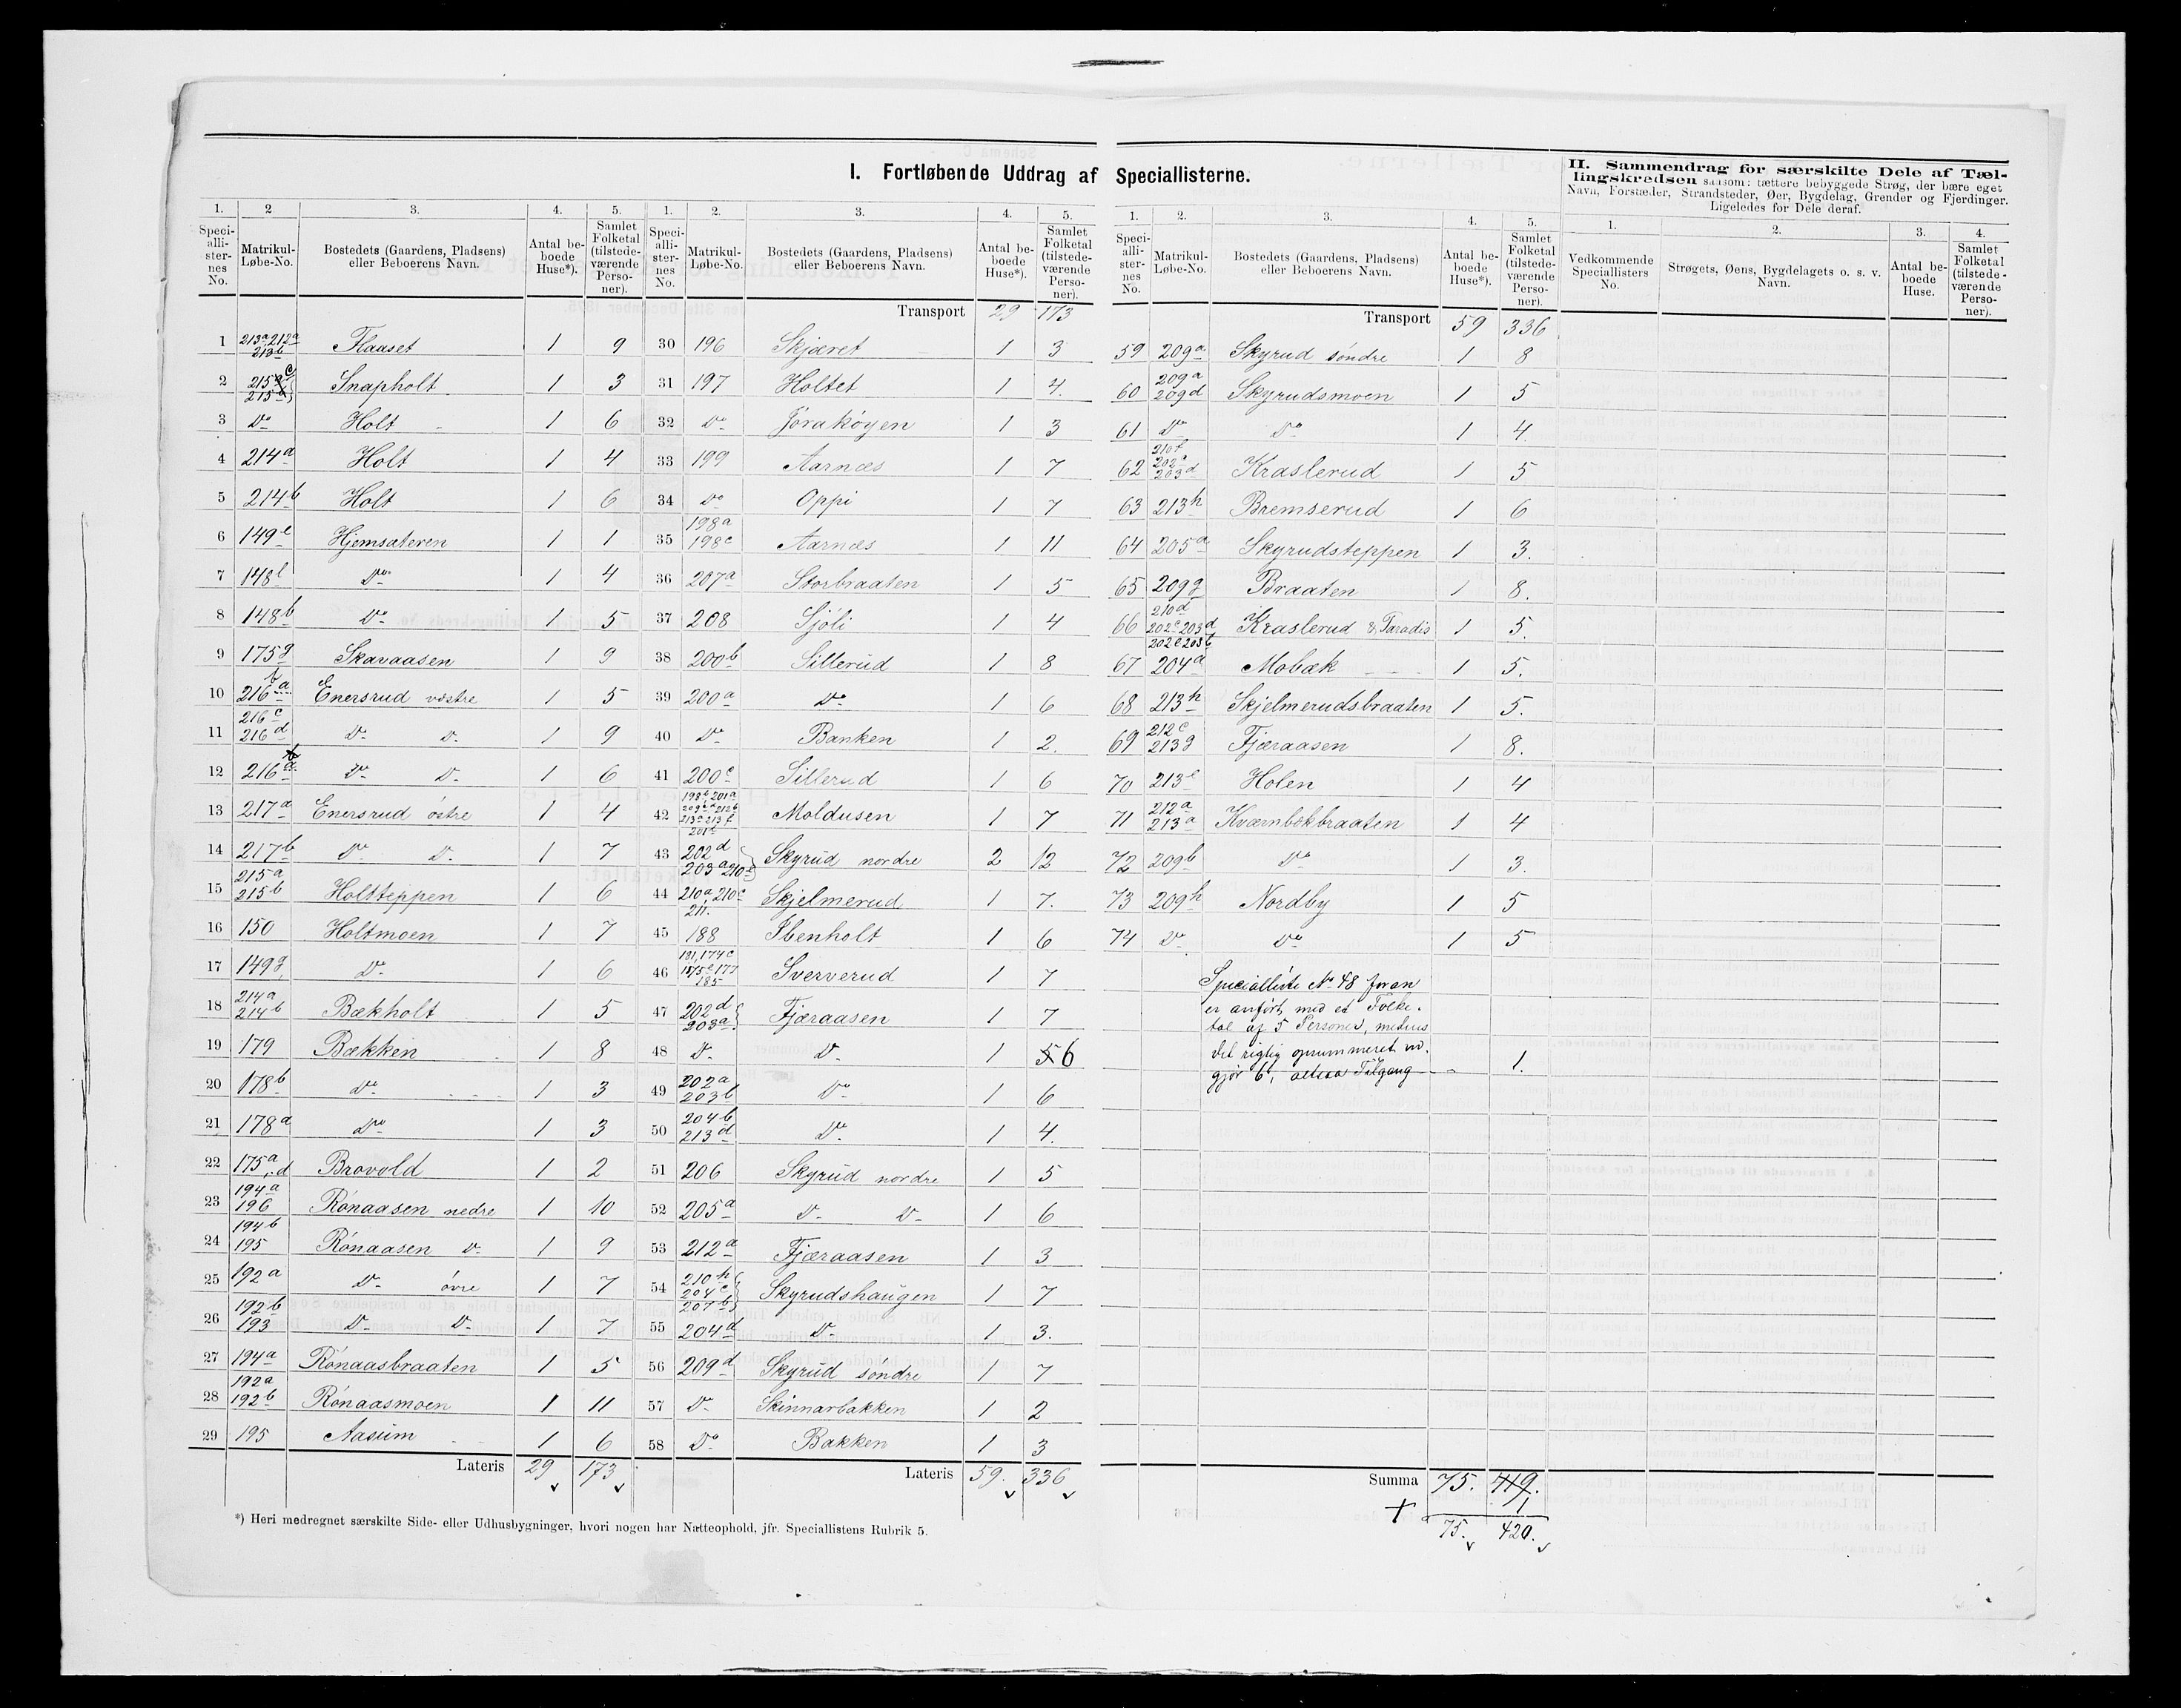 I. Fortløbende Uddrag af Speciallisterne.
1. 2 3. 4. 5.
Speciallisternes No. Matrikul-Løbe-No. Bostedets (Gaardens, Pladsens) eller Beboerens Navn. Antal beboede Huse*). Samlet Folketal (tilstedeværende Personer).
1 213a 212a 213b Flaaset 1 9
2 215c 215d Snapholt 1 3
3 Do Holt 1 6
4 214a Holt 1 4
5 214b Holt 1 6
6 149e Hjemsæteren 1 1
7 148l Do 1 4
8 148b Do 1 5
9 175g Skavaasen 1 9
10 216b Enersrud vestre 1 5
11 216c 216d Do Do 1 9
12 216a Do Do 1 6
13 217a Enersrud östre 1 4
14 217b Do Do 1 7
15 215a 215b Holtteppen 1 6
16 150 Holtmoen 1 7
17 149g Do 1 6
18 214a 214b Bækholt 1 5
19 179 Bækken 1 8
20 178b Do 1 3
21 178a Do 1 3
22 175a, d Brovold 1 2
23 194a 196 Rönaasen nedre 1 10
24 194b 195 Rönaasen Do 1 9
25 192a Do övre 1 7
26 192b 193 Do Do 1 7
27 194a Rönaasbraaten 1 5
28 192a 192b Rönaasmoen 1 11
29 195 Aasum 1 6
Lateris 29 173
1. 2. 3. 4. 5.
Speciallisternes No. Matrikul-Løbe-No. Bostedets (Gaardens, Pladsens) eller Beboerens Navn. Antal beboede Huse*). Samlet Folketal (tilstedeværende Personer).
Transport 29 173
30 196 Skjæret 1 3
31 197 Holtet 1 4.
32 Do Jöraköyen 1 3
33 199 Aarnæs 1 7
34 Do Oppi 1 7
35 198a 198c Aarnæs 1 11
36 207a Storbraaten 1 5
37 208 Sjöli 1 4
38 200b Sillerud 1 8
39 200a Do 1 6
40 Do Banken 1 2.
41 200c Sillerud 1 6
42 Moldusen 1 7
43 202d 203a 210e Skyrud nordre 2 12
44 210a, 210c 211. Skjelmerud 1 7.
45 188 Ibenholt 1 6
46 181, 174c 175e 177 185 Sververud 1 7
47 202d 203a. Fjæraasen 1 7
48 Do Do 1 5 6
49 202a 203b Do 1 6
50 204b 213d Do 1 4.
51 206 Skyrud nordre 1 5
52 205a Do Do 1 6
53 212a Fjæraasen 1 3
54 210h 204c 207b Skyrudshaugen 1 7
55 204d Do 1 3.
56 209d Skyrud söndre 1 7
57 Do Skinnarbakken 1 2
58 Do Bakken 1 3
Lateris 59. 336
1. 2. 3. 4. 5.
Speciallisternes No. Matrikul-Løbe-No. Bostedets (Gaardens, Pladsens) eller Beboerens Navn. Antal beboede Huse*). Samlet Folketal (tilstedeværende Personer).
Transport 59 336
59 209a Skyrud söndre 1 8
60 209a 209d Skyrudsmoen 1 5
61 Do Do 1 4.
62 210f 202c 203d Kraslerud 1 5
63 213h Bremserud 1 6
64 205a Skyrudsteppen 1 3.
65 209g Braaten 1 8.
66 210d 202c 203d Kraslerud & Paradis 1 5.
67 202e 203b 204a Mobæk 1 5.
68 213h Skjelmerudsbraaten 1 5.
69 212c 213g Fjæraasen 1 8.
70 213e Holen 1 4
71 212a 213a Kværnbækbraaten 1 4
72 209b Do 1 3.
73 209h Nordby 1 5
74 Do Do 1 5
Specialliste No 48 foran
er anfört med et Folke-
tal af 5 Personer, medens
det rigtig opsummeret ud-
gjör 6, altsaa Tilgang - - 1.
Summa 75. 419.
+ 1
75. 420.
II. Sammendrag for særskilte Dele af Tæl-
lingskredsen saasom: tættere bebyggede Strøg, der bære eget
Navn, Forstæder, Strandsteder, Øer, Bygdelag, Grender og Fjerdinger.
Ligeledes for Dele deraf.
1. 2. 3. 4.
Vedkommende Speciallisters No. Strøgets, Øens, Bygdelagets o. s. v. Navn. Antal beboede Huse. Samlet Folketal (tilstedeværende Personer).
*) Heri medregnet særskilte Side- eller Udhusbygninger, hvori nogen har Natteophold, jfr. Speciallistens Rubrik 5.